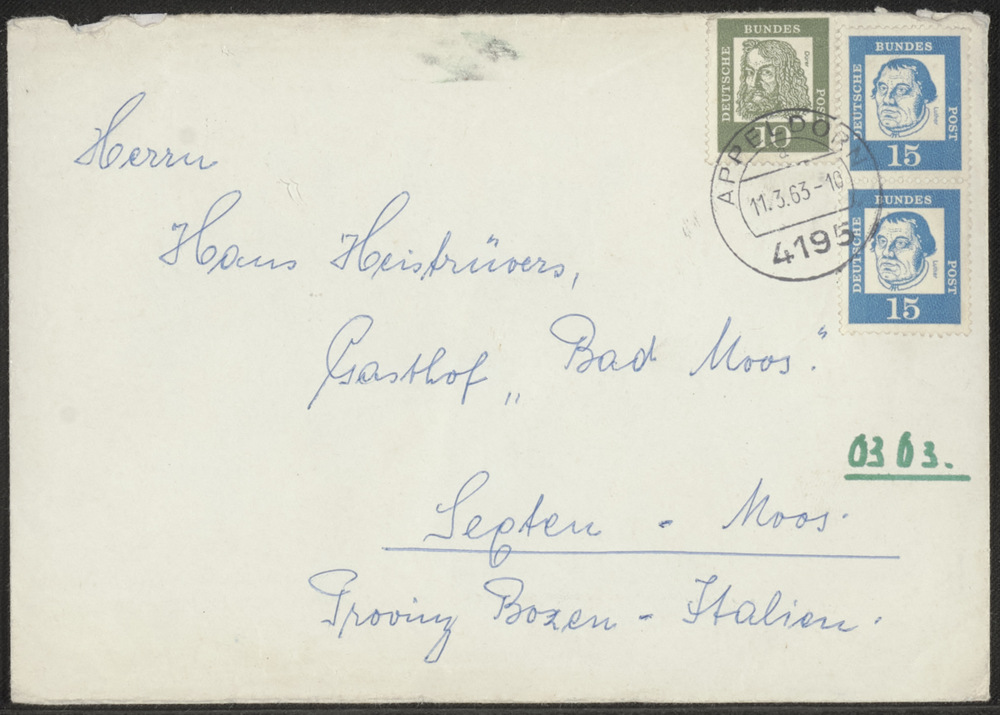 DEUTSCHE BUNDES POST
Dürer
10
DEUTSCHE BUNDES POST
Luther
15
DEUTSCHE BUNDES POST
Luther
15
APPELDORN
11.3.63-10
4195
Herrn
Hans Heistrüvers,
Gasthof „Bad Moos.“
0363.
Septen - Moos.
Provinz Bozen - Italien.